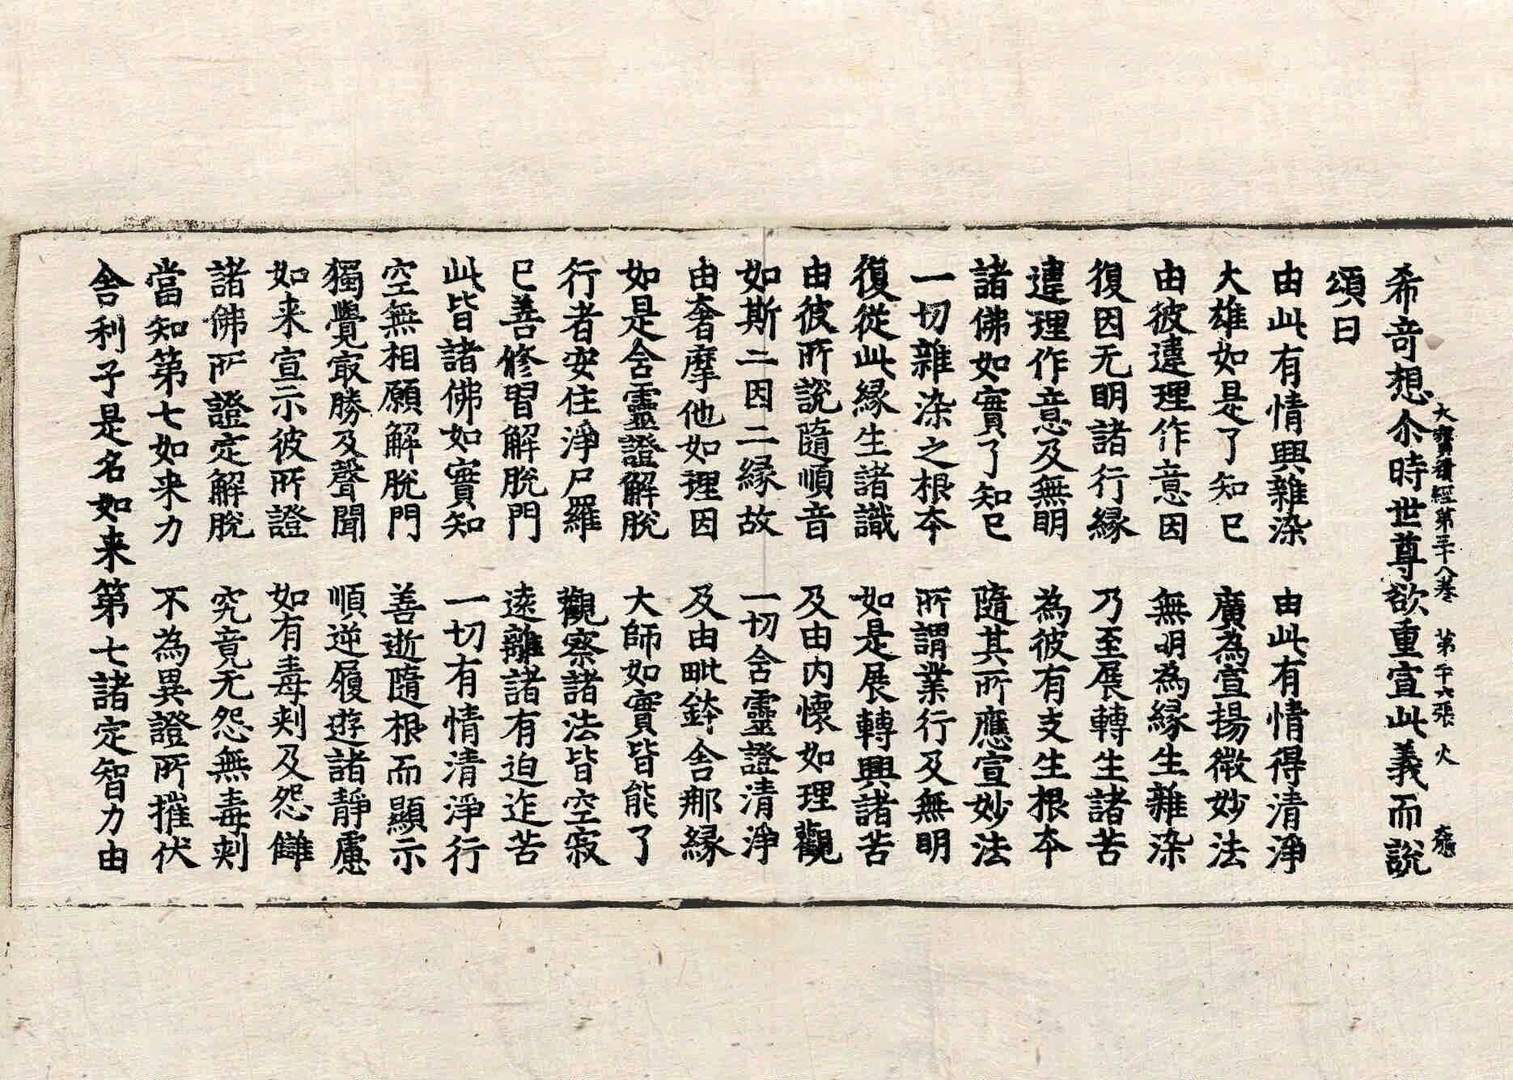 希竒想尒時世尊欲重宣此義而說
大寶積經第三十八卷　第二十六張　火
頌曰
由此有情興雜染　由此有情得清淨
大雄如是了知已　廣為宣揚微妙法
由彼違理作意因　無明為緣生雜染
復因无明諸行緣　乃至展轉生諸苦
違理作意及無明　為彼有支生根本
諸佛如實了知已　隨其所應宣妙法
一切雜染之根本　所謂業行及無明
復從此緣生諸識　如是展轉興諸苦
由彼所說隨順音　及由內懷如理觀
如斯二因二緣故　一切含靈證清淨
由奢摩他如理因　及由毗鉢舍那緣
如是含靈證解脫　大師如實皆能了
行者安住淨尸羅　觀察諸法皆空寂
已善修習解脫門　遠離諸有迫迮苦
此皆諸佛如實知　一切有情清淨行
空無相願解脫門　善逝隨根而顯示
獨覺㝡勝及聲聞　順逆履遊諸靜慮
如来宣示彼所證　如有毒刾及怨讎
諸佛所證定解脫　究竟无怨無毒刾
當知第七如来力　不為異證所摧伏
舍利子是名如来第七諸定智力由